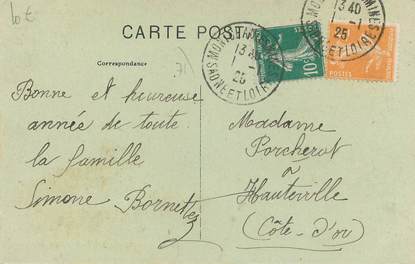 10 €
CARTE POSTALE
Correspondance
71
Bonne et heureuse
année de toute
la famille
Simone Bornettez
Madame
Porcherot
à
Hauteville
(Côte-d'or)
13 40
1 - 1
25
SAONE ET LOIRE
10c
POSTES
13 40
1 - 1
25
ET LOIRE